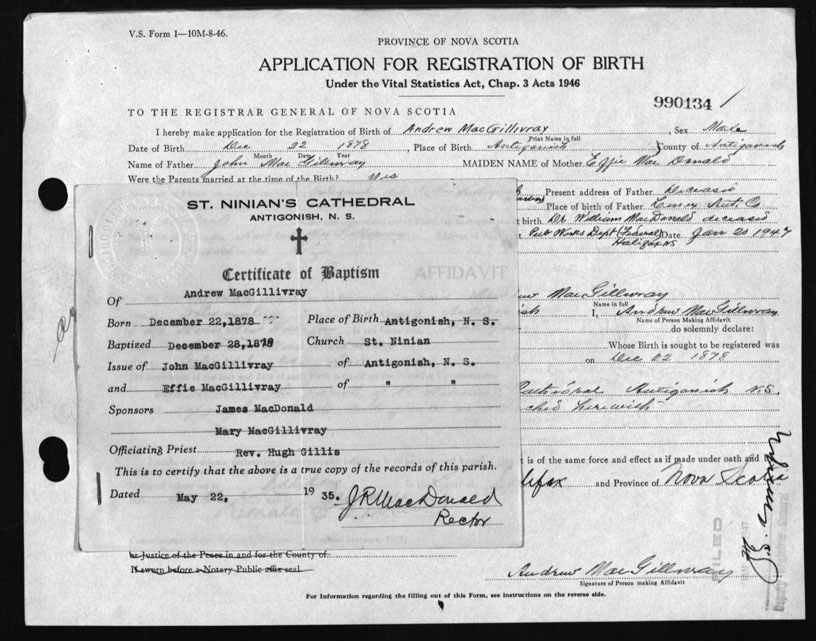 V.S. Form 1—10M-8-46.
PROVINCE OF NOVA SCOTIA
APPLICATION FOR REGISTRATION OF BIRTH
Under the Vital Statistics Act, Chap. 3 Acts 1946
990134 /
TO THE REGISTRAR GENERAL OF NOVA SCOTIA
I hereby make application for the Registration of Birth of Andrew MacGillivray, Sex Male
Print Name in full
Date of Birth Dec 22 1878, Place of Birth Antigonish County of Antigonish
Month Date Year
Name of Father John MacGillivray MAIDEN NAME of Mother Effie MacDonald
Were the Parents married at the time of the Birth? Yes
Present address of Father Deceased
Place of birth of Father Ant. Co
birth Dr. William MacDonald deceased
Pub Works Dept (Federal) Date Jan 20 1947
Halifax NS
ST. NINIAN'S CATHEDRAL
ANTIGONISH, N. S.
Certificate of Baptism
AFFIDAVIT
Of Andrew MacGillivray
Born December 22,1878 Place of Birth Antigonish, N. S.
Baptized December 28,1878 Church St. Ninian
Issue of John MacGillivray of Antigonish, N. S.
and Effie MacGillivray of " "
Sponsors James MacDonald
Mary MacGillivray
Officiating Priest Rev. Hugh Gillis
This is to certify that the above is a true copy of the records of this parish.
Dated May 22, 1935. J.R. MacDonald
Rector
MacGillivray
Name in full
I, Andrew MacGillivray
Name of Person Making Affidavit
do solemnly declare:
Whose Birth is sought to be registered was
on Dec 22 1878
Cathedral Antigonish N.S.
herewith
t is of the same force and effect as if made under oath and
lifax and Province of Nova Scotia
FILED
or Justice of the Peace in and for the County of
If sworn before a Notary Public affix seal.
Andrew MacGillivray
Signature of Person making Affidavit
For Information regarding the filling out of this Form, see instructions on the reverse side.